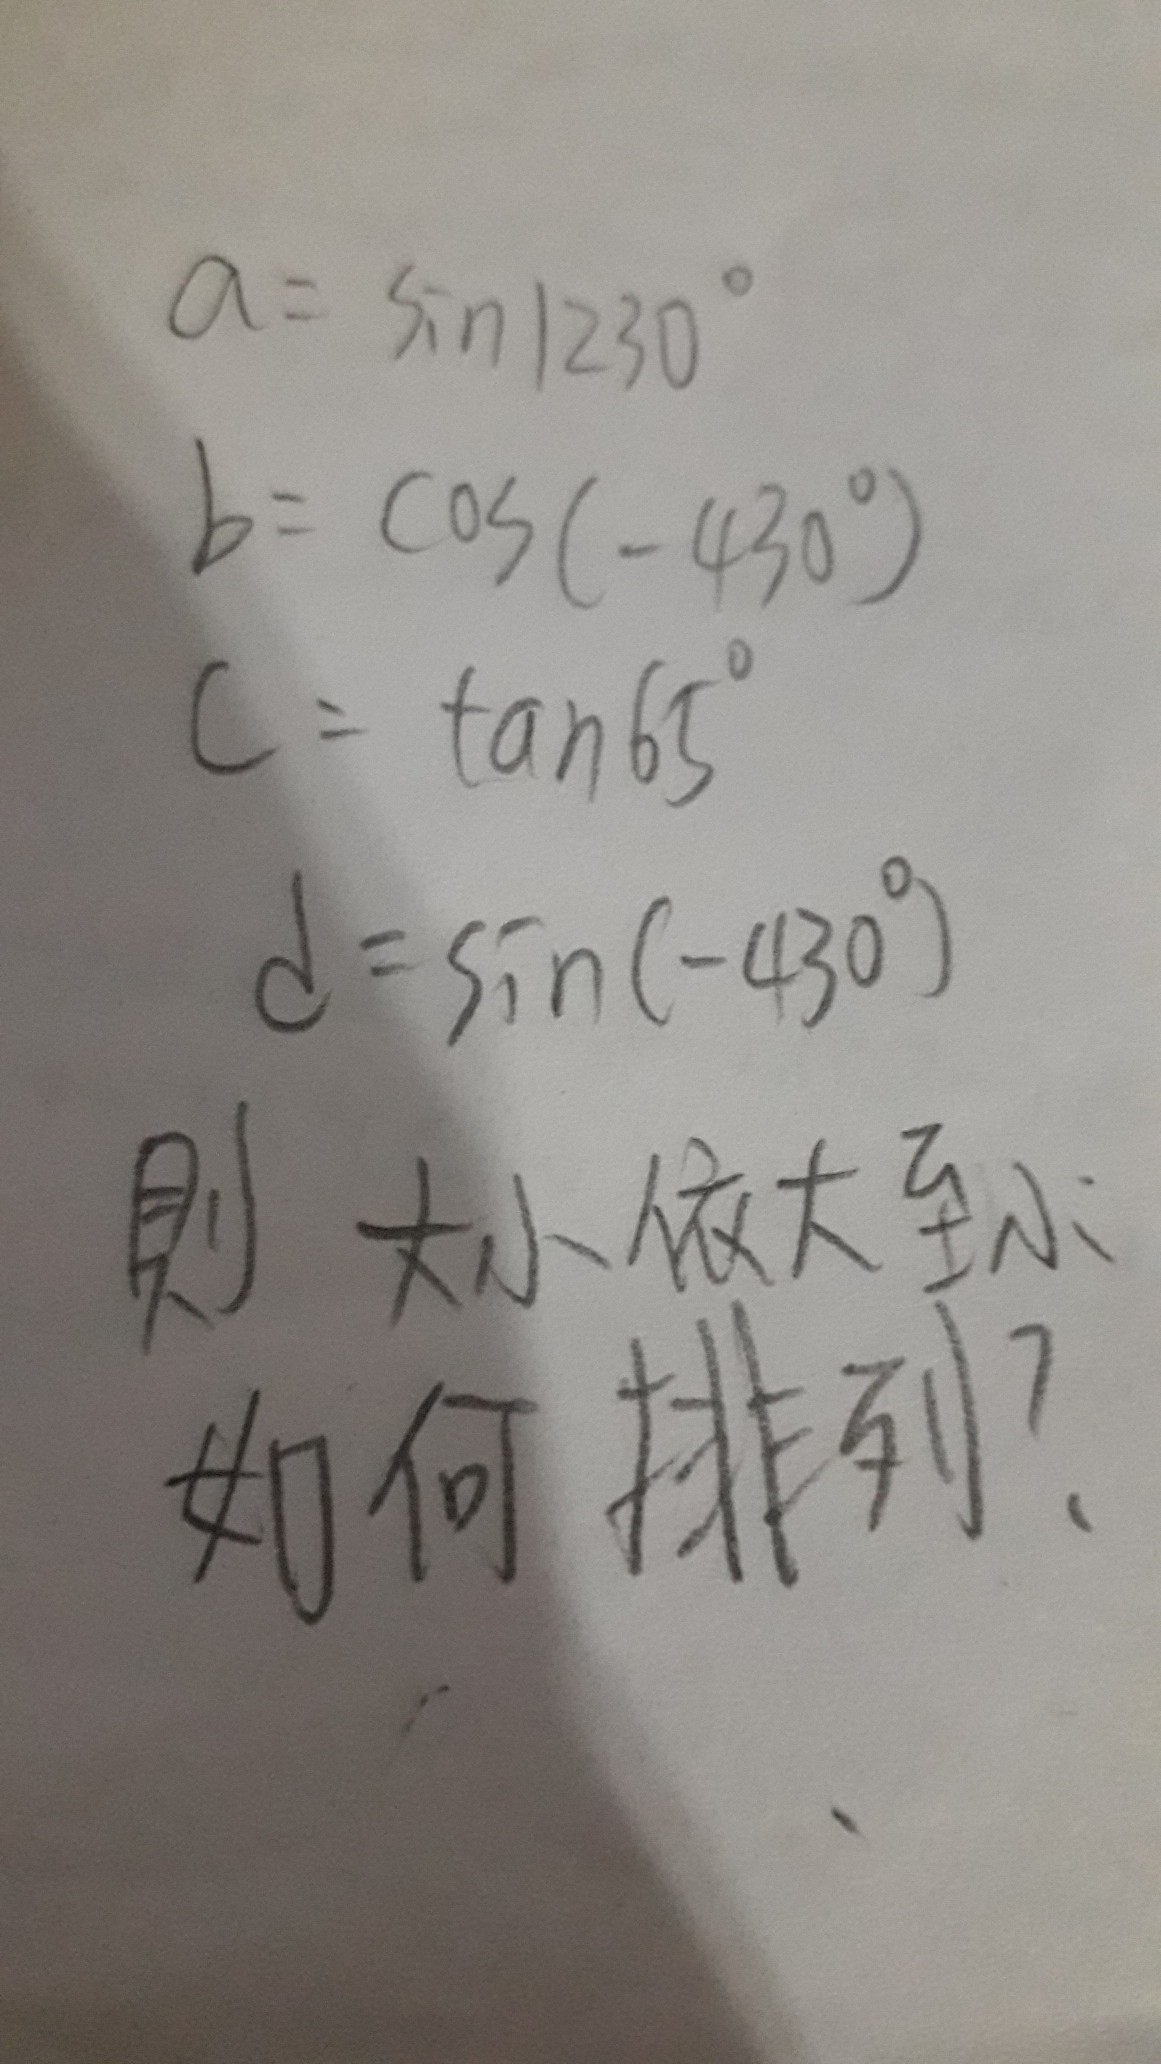 a = sin1230°
b = cos(-430°)
c = tan65°
d = sin(-430°)
則 大小依大至小
如何排列?